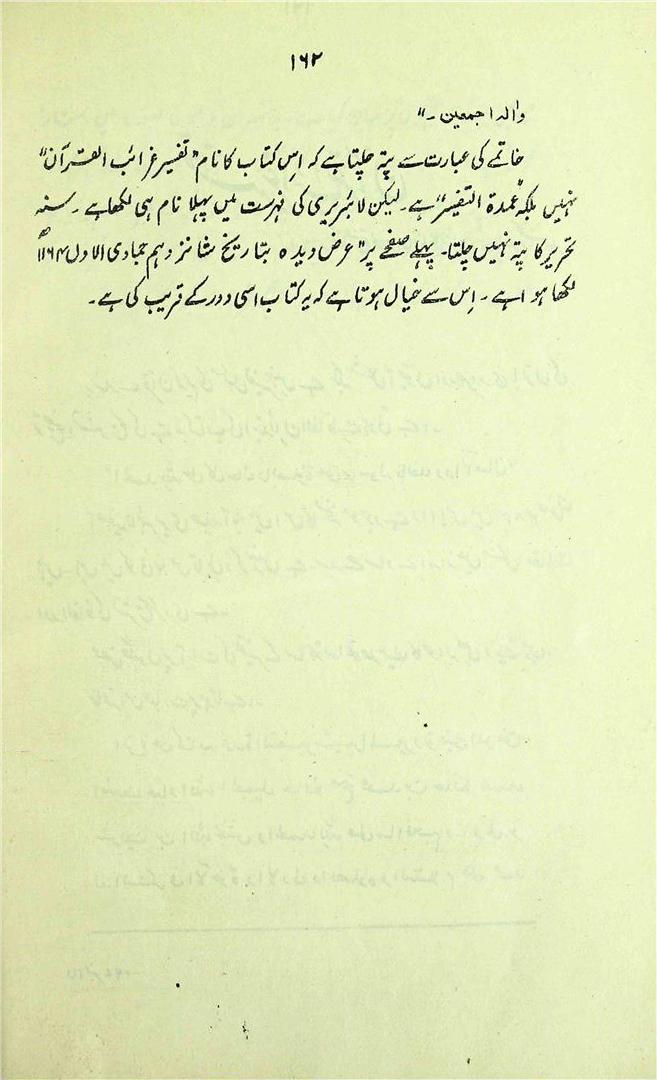 ۱۶۲
والہ اجمعین۔"
خاتمے کی عبارت سے پتہ چلتا ہے کہ اس کتاب کا نام "تفسیر غرائب القرآن"
نہیں بلکہ "عمدۃ التفسیر" ہے۔ لیکن لائبریری کی فہرست میں پہلا نام ہی لکھا ہے۔ سنہ
تحریر کا پتہ نہیں چلتا۔ پہلے صفحے پر "عرض دیدہ بتاریخ شانزدہم جمادی الاول ۱۱۶۴ھ"
لکھا ہوا ہے۔ اِس سے خیال ہوتا ہے کہ یہ کتاب اسی دور کے قریب کی ہے۔